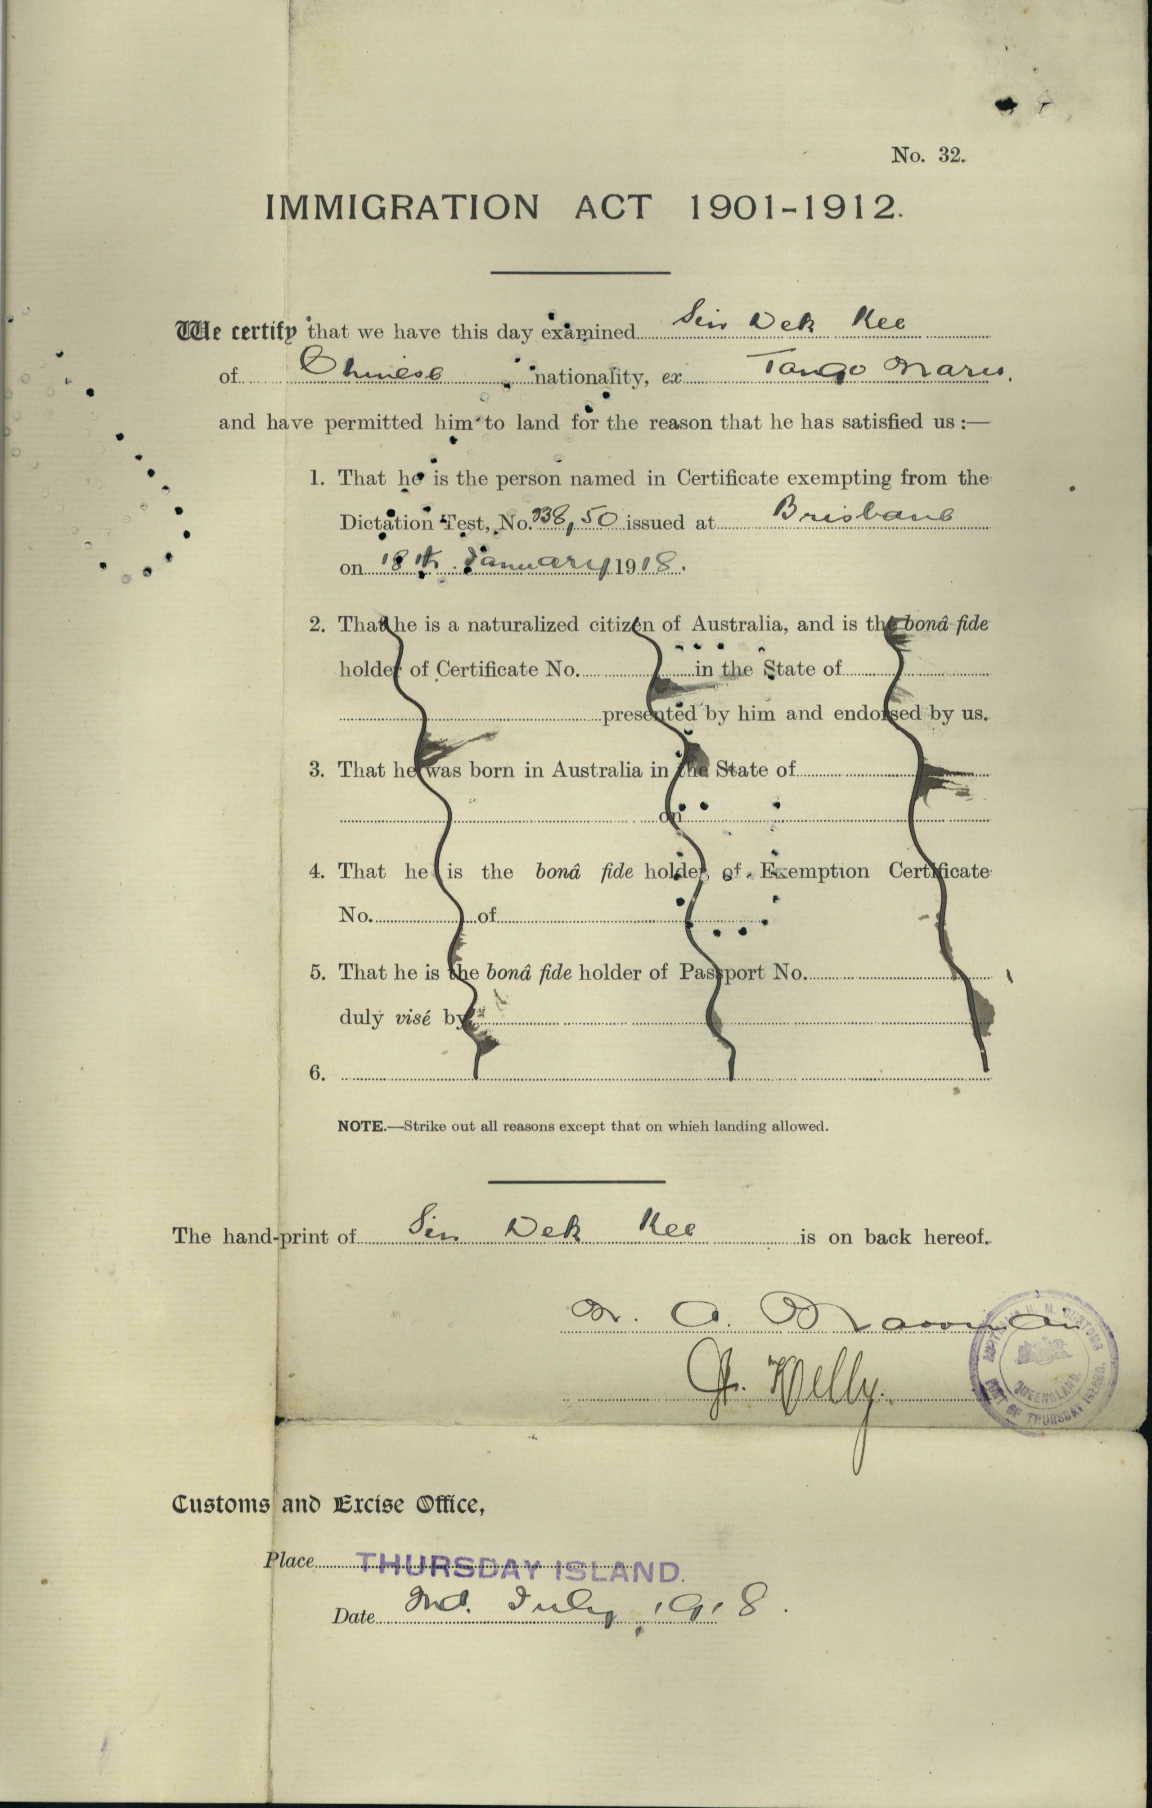 No. 32.
IMMIGRATION ACT 1901-1912.
We certify that we have this day examined Sin Dek Kee
of Chinese nationality, ex Tango Maru.
and have permitted him to land for the reason that he has satisfied us :—
1. That he is the person named in Certificate exempting from the
Dictation Test, No. 238,50 issued at Brisbane
on 18th January 1918.
2. That he is a naturalized citizen of Australia, and is the bonâ fide
holder of Certificate No. in the State of
presented by him and endorsed by us.
3. That he was born in Australia in the State of
on
4. That he is the bonâ fide holder of Exemption Certificate
No. of
5. That he is the bonâ fide holder of Passport No.
duly visé by
6.
NOTE.—Strike out all reasons except that on which landing allowed.
The hand-print of Sin Dek Kee is on back hereof.
Kelly.
AUSTRALIA H. M. CUSTOMS
QUEENSLAND.
PORT OF THURSDAY ISLAND.
Customs and Excise Office,
Place THURSDAY ISLAND.
Date 2nd. July 1918.